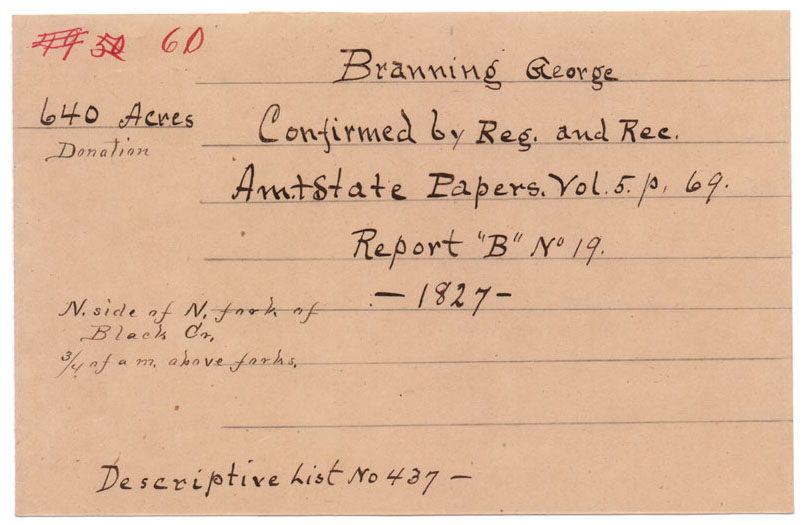 6D
Branning George
640 Acres
Donation
Confirmed by Reg. and Rec.
Am.t State Papers. Vol. 5. p. 69.
Report "B" No 19.
- 1827 -
N. side of N. fork of
Black Cr.
3/4 of a m. above forks.
Descriptive List No 437 -